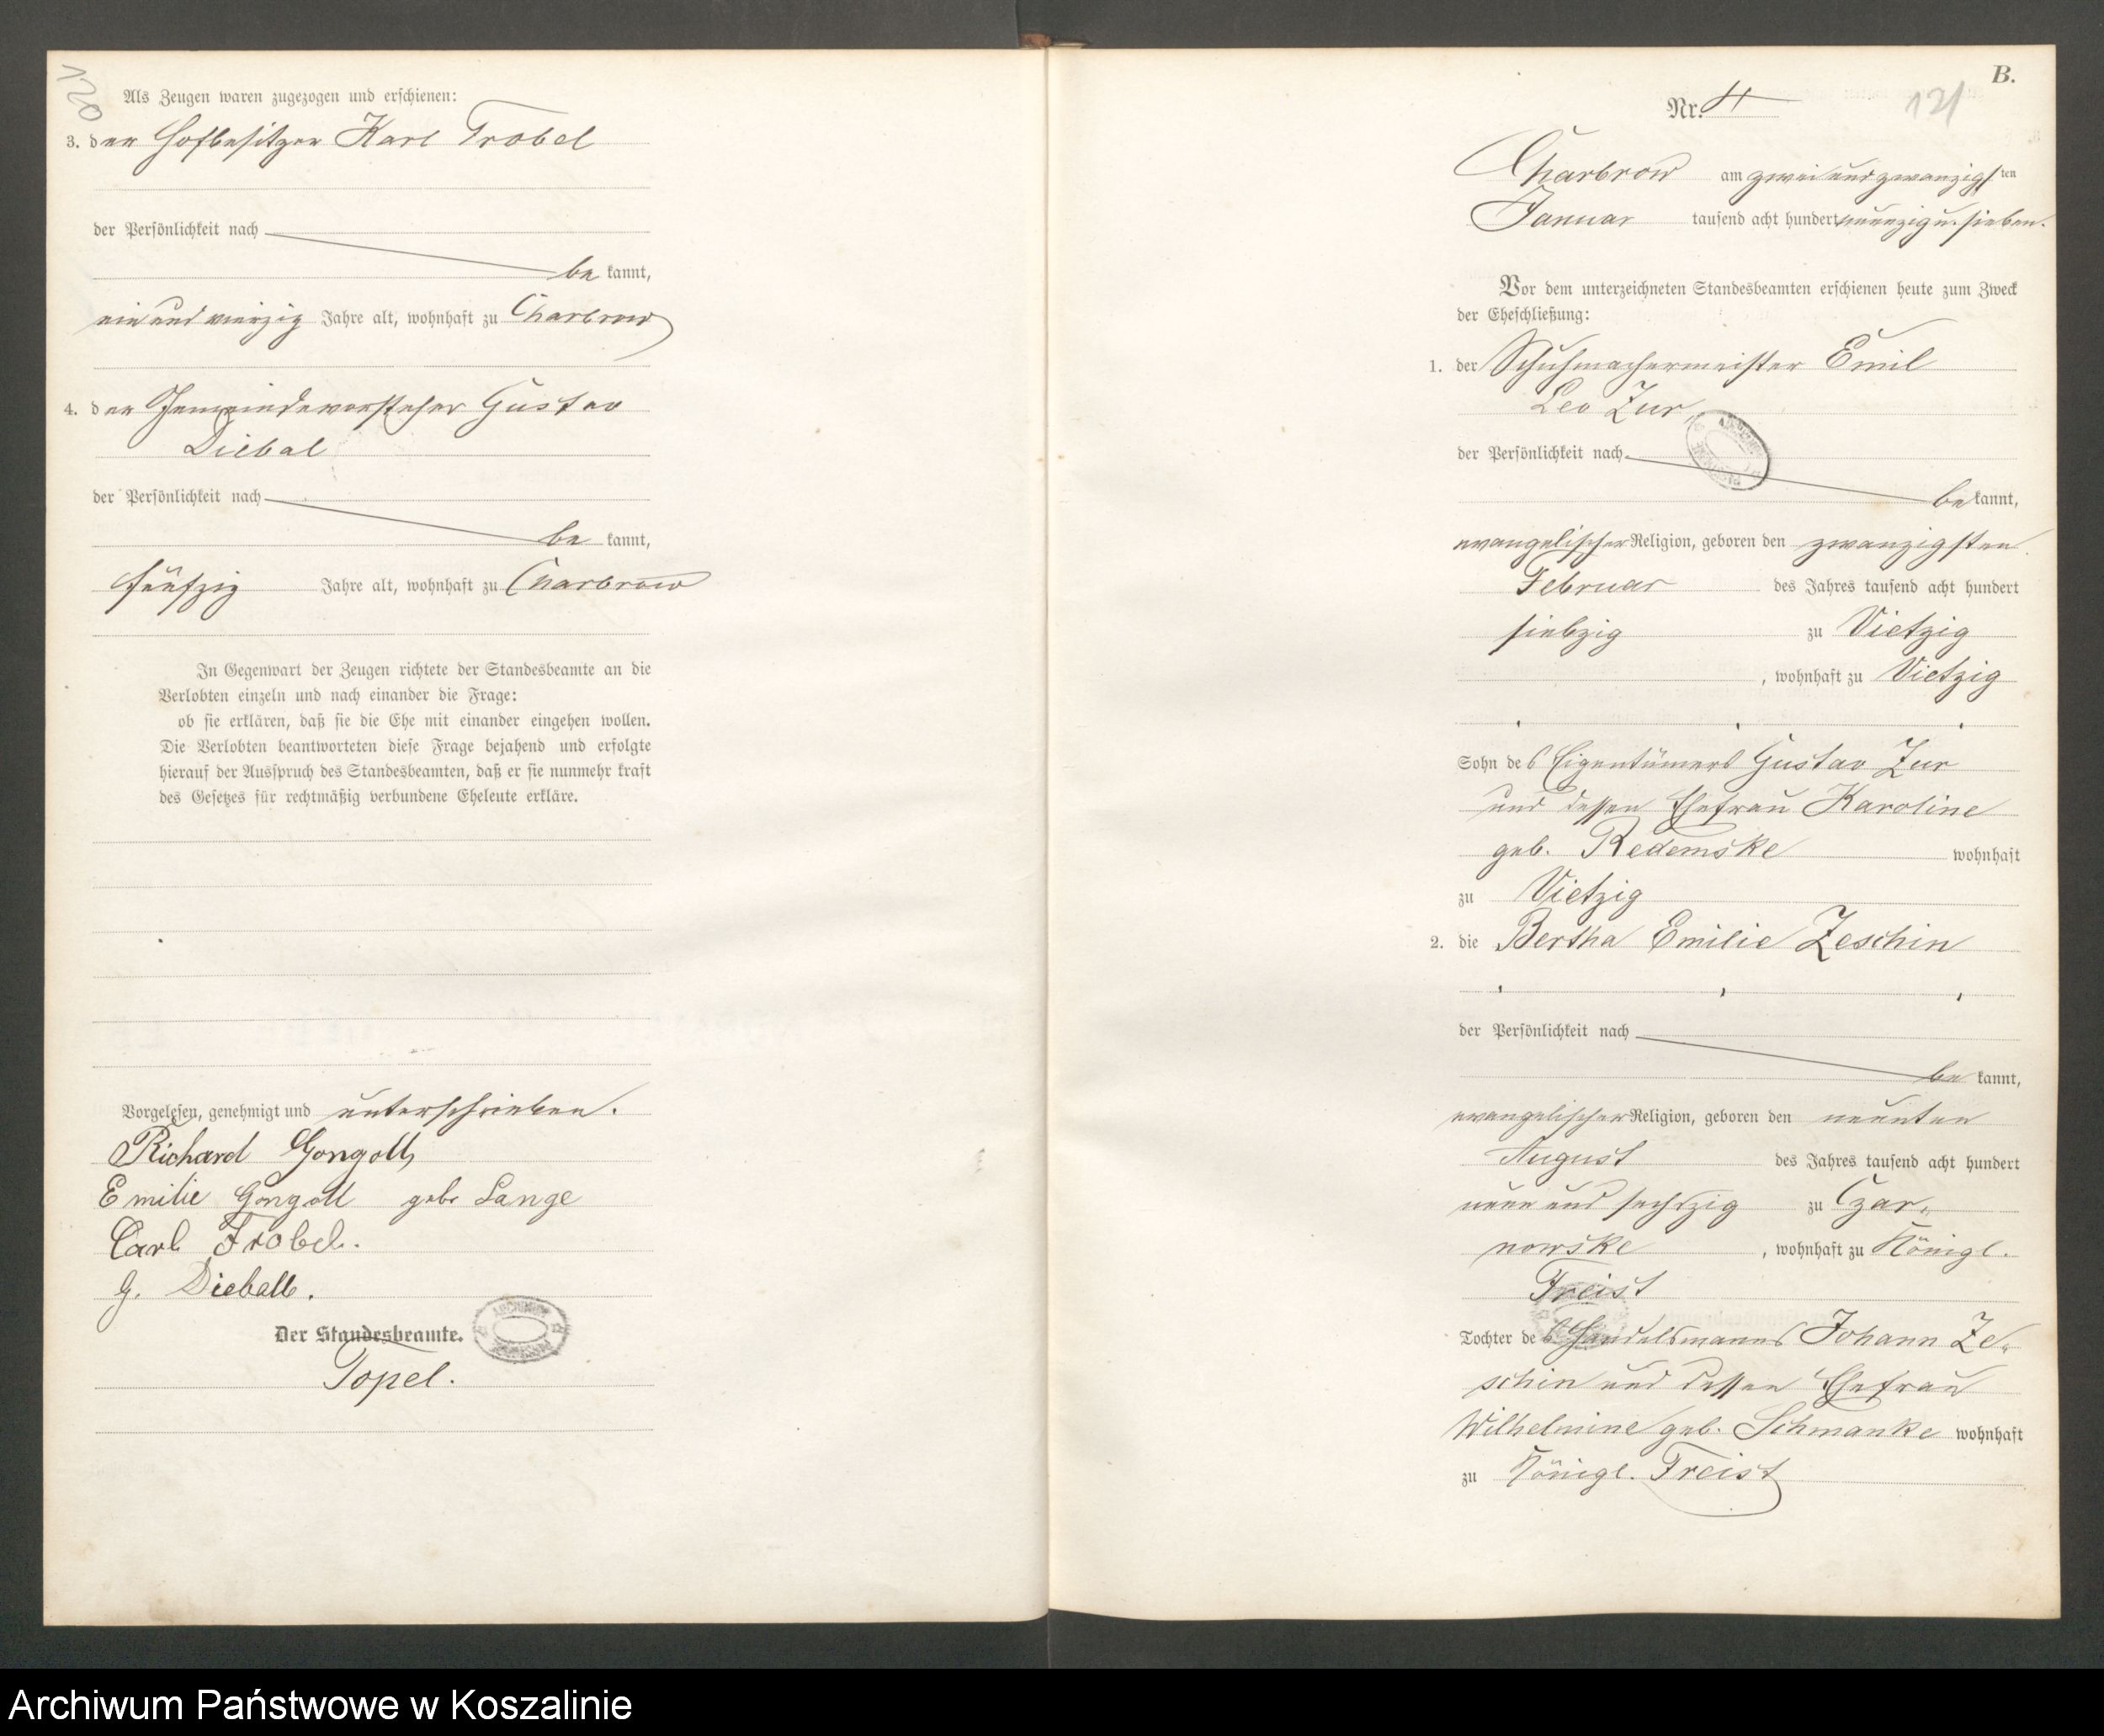 120
Als Zeugen waren zugezogen und erschienen:
3. den Hofbesitzer Karl Trobel
der Persönlichkeit nach
bekannt,
ein und vierzig Jahre alt, wohnhaft zu Charbrow
4. den Gemeindevorsteher Gustav
Diebal
der Persönlichkeit nach
bekannt,
fünfzig Jahre alt, wohnhaft zu Charbrow
In Gegenwart der Zeugen richtete der Standesbeamte an die
Verlobten einzeln und nach einander die Frage:
ob sie erklären, daß sie die Ehe mit einander eingehen wollen.
Die Verlobten beantworteten diese Frage bejahend und erfolgte
hierauf der Ausspruch des Standesbeamten, daß er sie nunmehr kraft
des Gesetzes für rechtmäßig verbundene Eheleute erkläre.
Vorgelesen, genehmigt und unterschrieben.
Richard Gongoll
Emilie Gongoll gebr Lange
Carl Frobel.
G. Dieball.
Der Standesbeamte.
Topel.
B.
Nr. 4
121
Charbrow am zwei und zwanzigsten
Januar tausend acht hundert neunzig u. sieben.
Vor dem unterzeichneten Standesbeamten erschienen heute zum Zweck
der Eheschließung:
1. der Schuhmachermeister Emil
Leo Zur
der Persönlichkeit nach
bekannt,
evangelischer Religion, geboren den zwanzigsten
Februar des Jahres tausend acht hundert
siebzig zu Vietzig
, wohnhaft zu Vietzig
Sohn des Eigentümers Gustav Zur
und dessen Ehefrau Karoline
geb. Redemske wohnhaft
zu Vietzig
2. die Bertha Emilie Zeschin
der Persönlichkeit nach
bekannt,
evangelischer Religion, geboren den neunten
August des Jahres tausend acht hundert
neun und sechszig zu Czar-
nowske, wohnhaft zu Königl.
Freist
Tochter des Handelsmanns Johann Ze-
schin und dessen Ehefrau
Wilhelmine geb. Schmanke wohnhaft
zu Königl. Freist
Archiwum Państwowe w Koszalinie